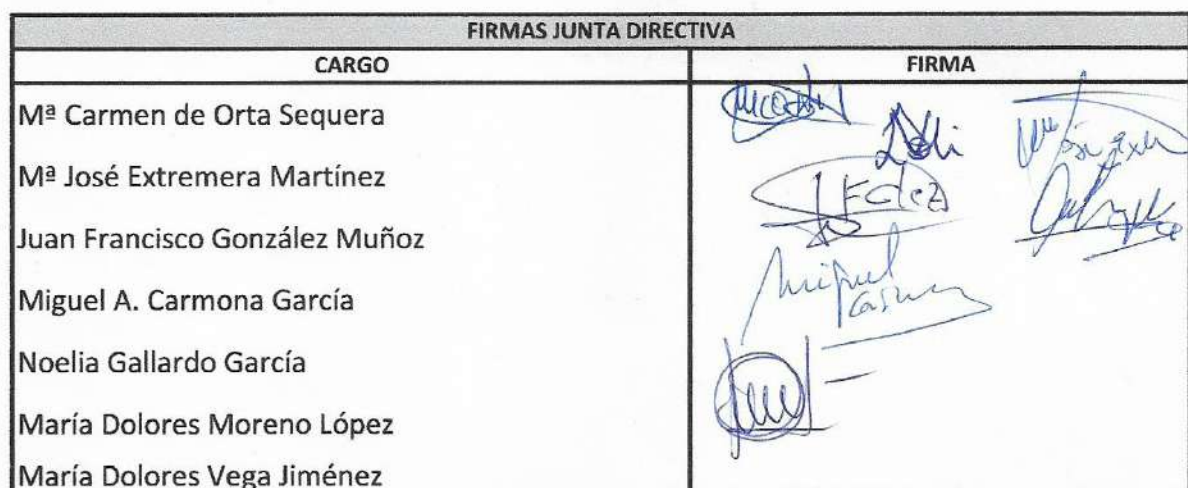 FIRMAS JUNTA DIRECTIVA
CARGO FIRMA
Mª Carmen de Orta Sequera
Mª José Extremera Martínez
Juan Francisco González Muñoz
Miguel A. Carmona García
Noelia Gallardo García
María Dolores Moreno López
María Dolores Vega Jiménez
Loli
Miguel